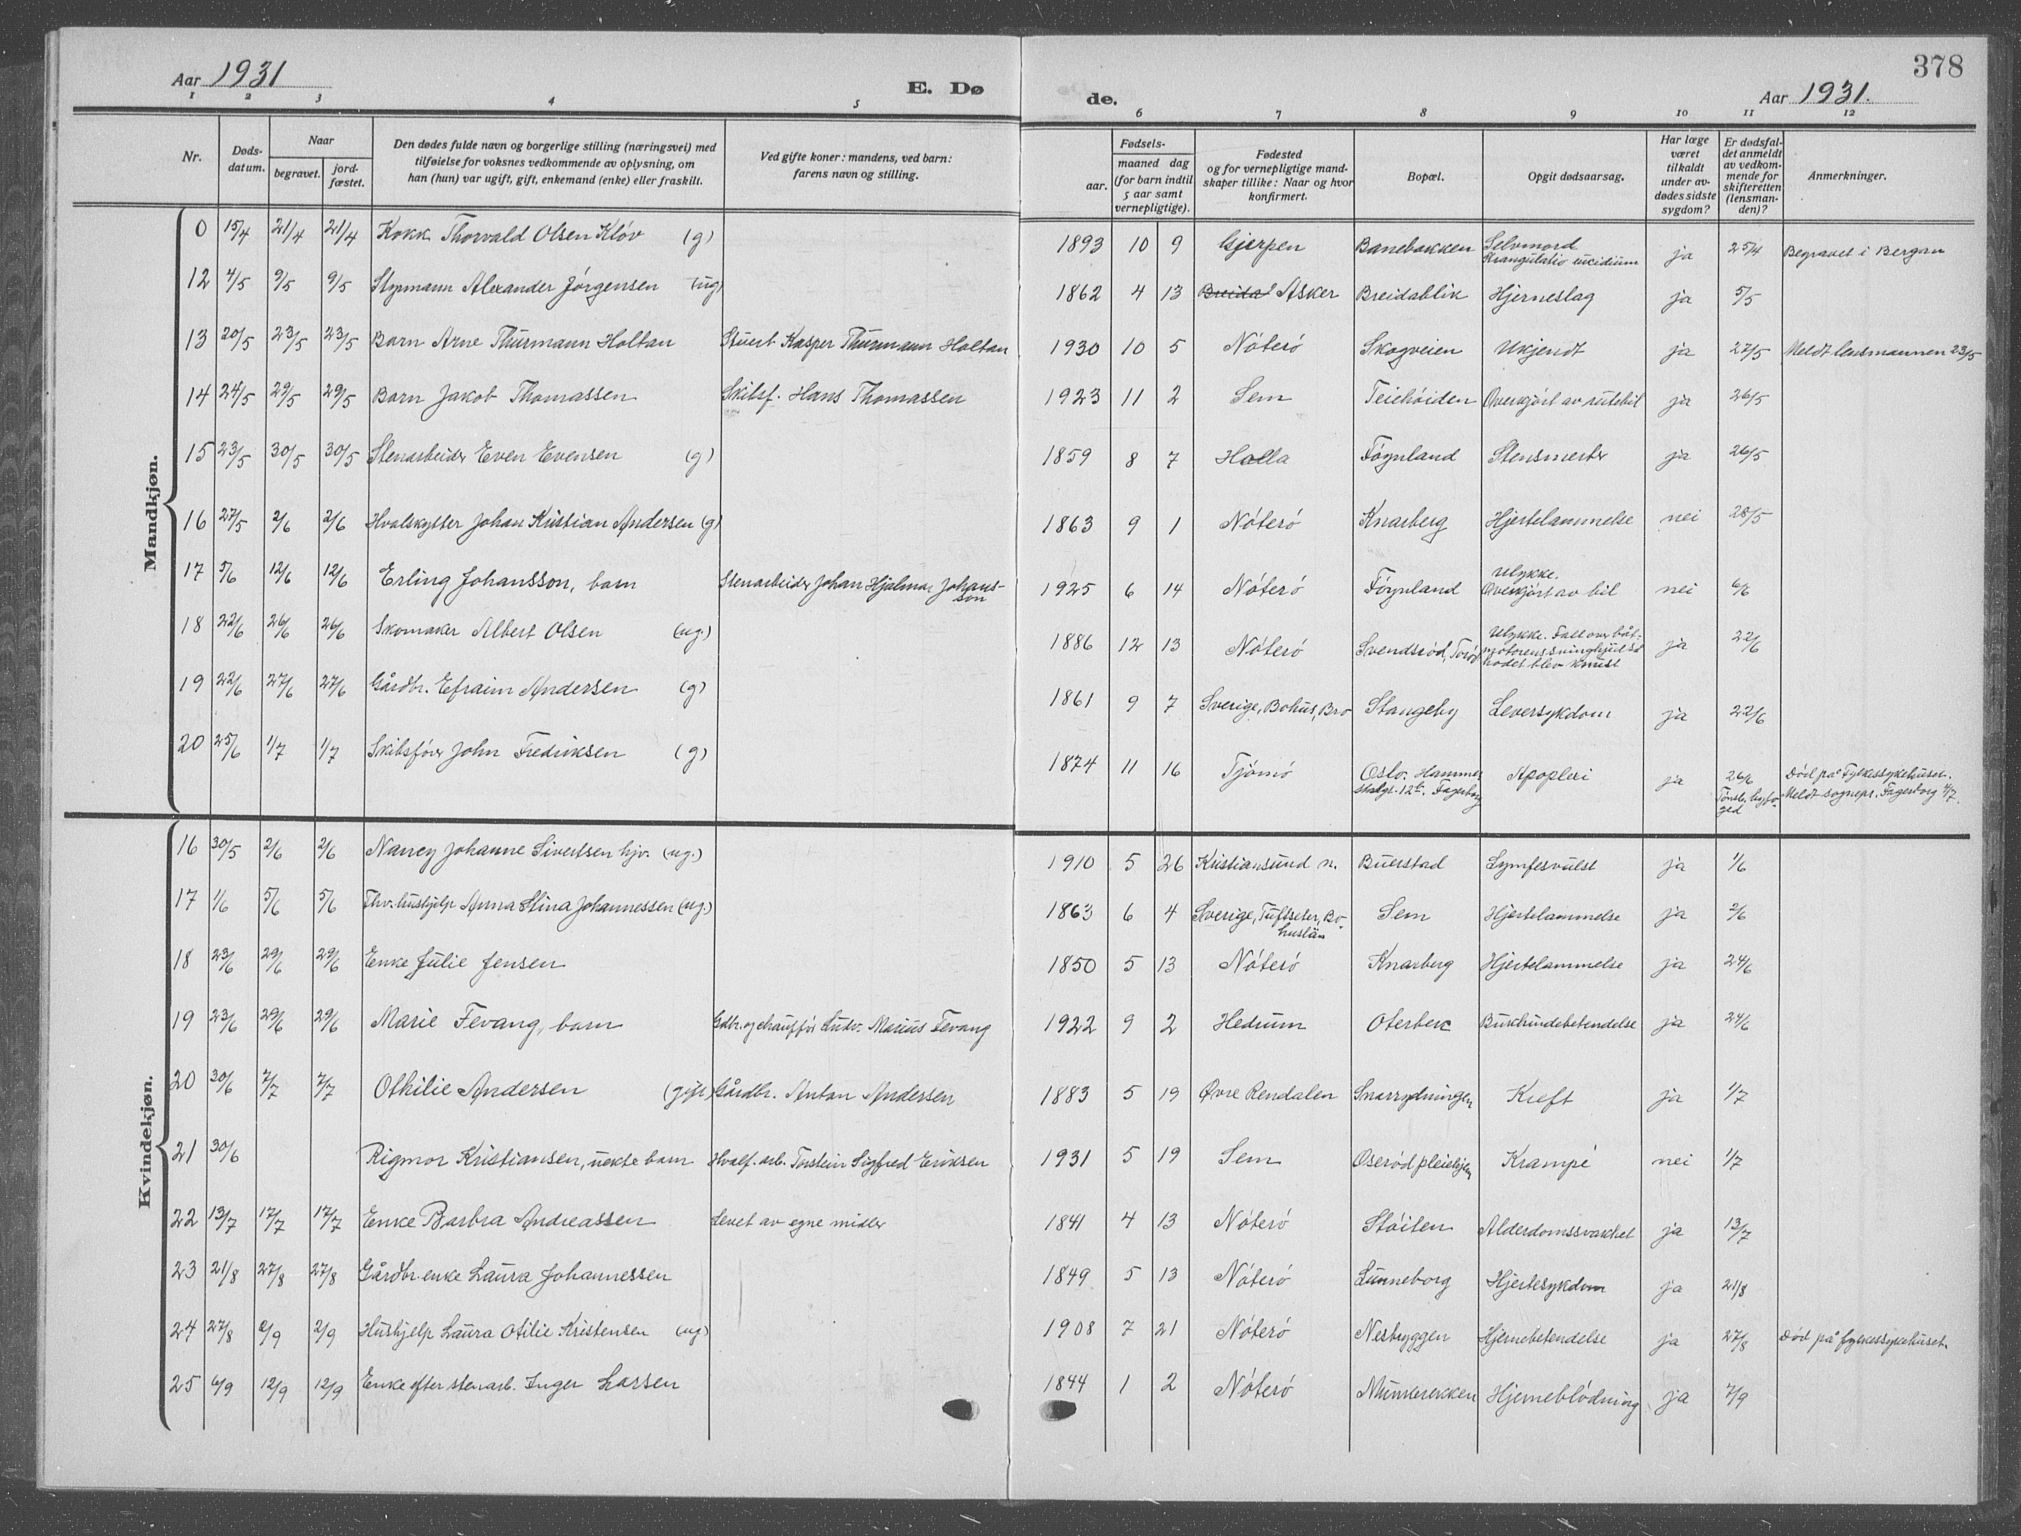 378
Aar 1931 E. Dø de. Aar 1931.
1 2 3 4 5 6 7 8 9 10 11 12
Nr. Døds-datum. Naar begravet. jord-fæstet. Den dødes fulde navn og borgerlige stilling (næringsvei) med tilføielse for voksnes vedkommende av oplysning, om han (hun) var ugift, gift, enkemand (enke) eller fraskilt. Ved gifte koner: mandens, ved barn: farens navn og stilling. Fødsels- aar. maaned dag (for barn indtil 5 aar samt vernepligtige). Fødested og for vernepligtige mandskaper tillike: Naar og hvor konfirmert. Bopæl. Opgit dødsaarsag. Har læge været tilkaldt under avdødes sidste sygdom? Er dødsfaldet anmeldt av vedkommende for skifteretten (lensmanden)? Anmerkninger.
Mandkjøn.
0 15/4 21/4 21/4 Kokk Thorvald Olsen Kløv (g) 1893 10 9 Gjerpen Banebakken Selvmord 25/4 ja Begravet i Bergan
12 4/5 9/5 9/5 Styrmann Alexander Jørgensen (ug) 1862 4 13 Asker Breidablik Hjerneslag ja 5/5
13 20/5 23/5 23/5 Barn Arne Thurmann Holtan Stuert Kasper Thurmann Holtan 1930 10 5 Nøterø Skogveien Ukjendt ja 27/5 Meldt lensmannen 23/5
14 24/5 29/5 29/5 Barn Jakob Thomassen Skibsf. Hans Thomassen 1923 11 2 Sem Teiehøiden Overkjørt av rutebil ja 26/5
15 23/5 30/5 30/5 Stenarbeider Even Evensen (g) 1859 8 7 Holla Føynland Stensmerter ja 26/5
16 27/5 2/6 2/6 Hvalskytter Johan Kristian Andersen (g) 1863 9 1 Nøterø Knarberg Hjertelammelse nei 28/5
17 5/6 12/6 12/6 Erling Johansson, barn Stenarbeider Johan Hjalmar Johansson 1925 6 14 Nøterø Føynland Ulykke. Overkjørt av bil nei 6/6
18 22/6 26/6 26/6 Skomaker Albert Olsen (ug.) 1886 12 13 Nøterø Svendsrød, Torød Ulykke. Falt over båtmotorens svinghjul så hodet blev knust ja 22/6
19 22/6 27/6 27/6 Gårdbr. Efraim Andersen (g) 1861 9 7 Sverige, Bohus, Bro Stangeby Leversykdom ja 22/6
20 25/6 1/7 1/7 Skibsfører John Fredriksen (g) 1874 11 16 Tjømø Oslo. Hammerstadgt. 12b. Fagerborg Apoplexi ja 26/6 Tønsb. byfoged Død på Fylkessykehuset. Meldt sognepr. Fagerborg 4/7.
Kvindekjøn.
16 30/5 2/6 2/6 Nancy Johanne Sivertsen hjv. (ug.) 1910 5 26 Kristiansund n. Buerstad Lymfesvulst ja 1/6
17 1/6 5/6 5/6 Fhv. hushjelp Anna Stina Johannessen (ug.) 1863 6 4 Sverige, Tuftseter, Bohuslän Sem Hjertelammelse ja 2/6
18 23/6 29/6 29/6 Enke Julie Jensen 1850 5 13 Nøterø Knarberg Hjertelammelse ja 24/6
19 23/6 29/6 29/6 Marie Fevang, barn Gdbr. og chauffør Ludv. Marius Fevang 1922 9 2 Hedrum Oterbek Bukhindebetendelse ja 24/6
20 30/6 7/7 7/7 Othilie Andersen (gift) Gårdbr. Anton Andersen 1883 5 19 Øvre Rendalen Snarrydningen Kreft ja 1/7
21 30/6 Rigmor Kristiansen, uekte barn Hvalf. arb. Torstein Sigfred Eriksen 1931 5 19 Sem Oserød pleiehjem Krampe nei 1/7
22 13/7 17/7 17/7 Enke Barbra Andreassen Levet av egne midler 1841 4 13 Nøterø Støiten Alderdomssvakhet ja 13/7
23 21/8 27/8 27/8 Gårdbr. enke Laura Johannessen 1849 5 13 Nøterø Lunneborg Hjertesykdom ja 21/8
24 27/8 2/9 2/9 Hushjelp Laura Otilie Kristensen (ug) 1908 7 21 Nøterø Nesbryggen Hjernebetendelse ja 27/8 Død på fylkessykehuset.
25 6/9 12/9 12/9 Enke efter stenarb. Inger Larsen 1844 1 2 Nøterø Munkerekken Hjerneblødning ja 7/9